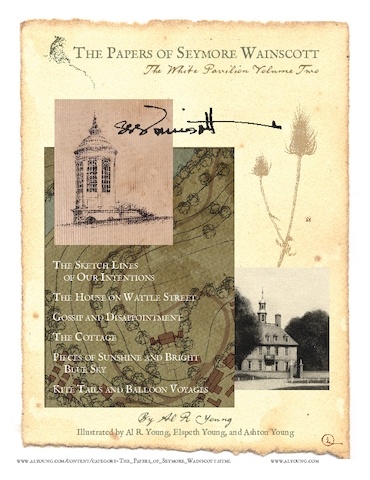 The Papers of Seymore Wainscott
The White Pavilion Volume Two
The Sketch Lines
of Our Intentions
The House on Wattle Street
Gossip and Disappointment
The Cottage
Pieces of Sunshine and Bright
Blue Sky
Kite Tails and Balloon Voyages
By Al R. Young
Illustrated by Al R. Young, Elspeth Young, and Ashton Young
www.alyoung.com/content/category=The_Papers_of_Seymore_Wainscott.html
www.alyoung.com